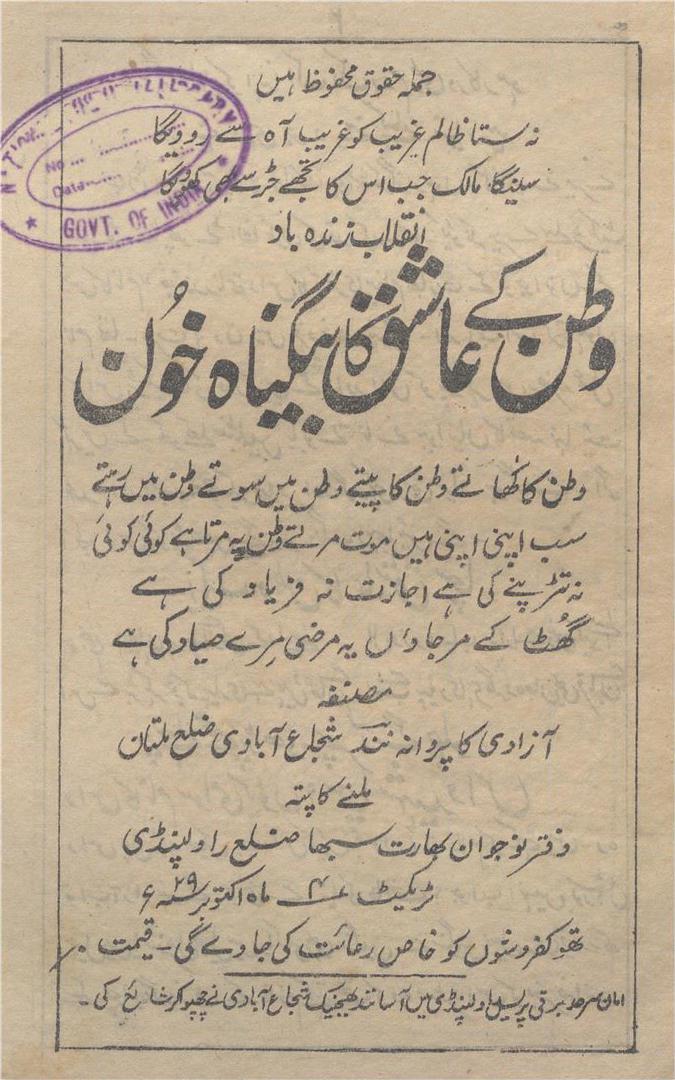 جملہ حقوق محفوظ ہیں
نہ ستا ظالم غریب کو غریب آہ سے رو دیگا
سنیگا مالک جب اس کا تجھے جڑ سے بھی کھو دیگا
انقلاب زندہ باد
وطن کے عاشق کا بیگناہ خُون
وطن کا کھاتے وطن کا پیتے وطن میں سوتے وطن میں رہتے
سب اپنی اپنی ہیں موت مرتے وطن پہ مرتا ہے کوئی کوئی
نہ تڑپنے کی ہے اجازت نہ فریاد کی ہے
گھُٹ کے مر جاؤں یہ مرضی مِرے صیاد کی ہے
مصنفہ
آزادی کا پروانہ نند شجاع آبادی ضلع ملتان
ملنے کا پتہ
دفتر نوجوان بھارت سبھا ضلع راولپنڈی
ٹریکٹ ماہ اکتوبر ۲۹ء
تھوکفروشوں کو خاص رعائت کی جاوے گی۔ قیمت
امان سرحد برقی پریس راولپنڈی میں شجاع آبادی نے چھپوا کر شائع کی۔
GOVT. OF INDIA
No
Date